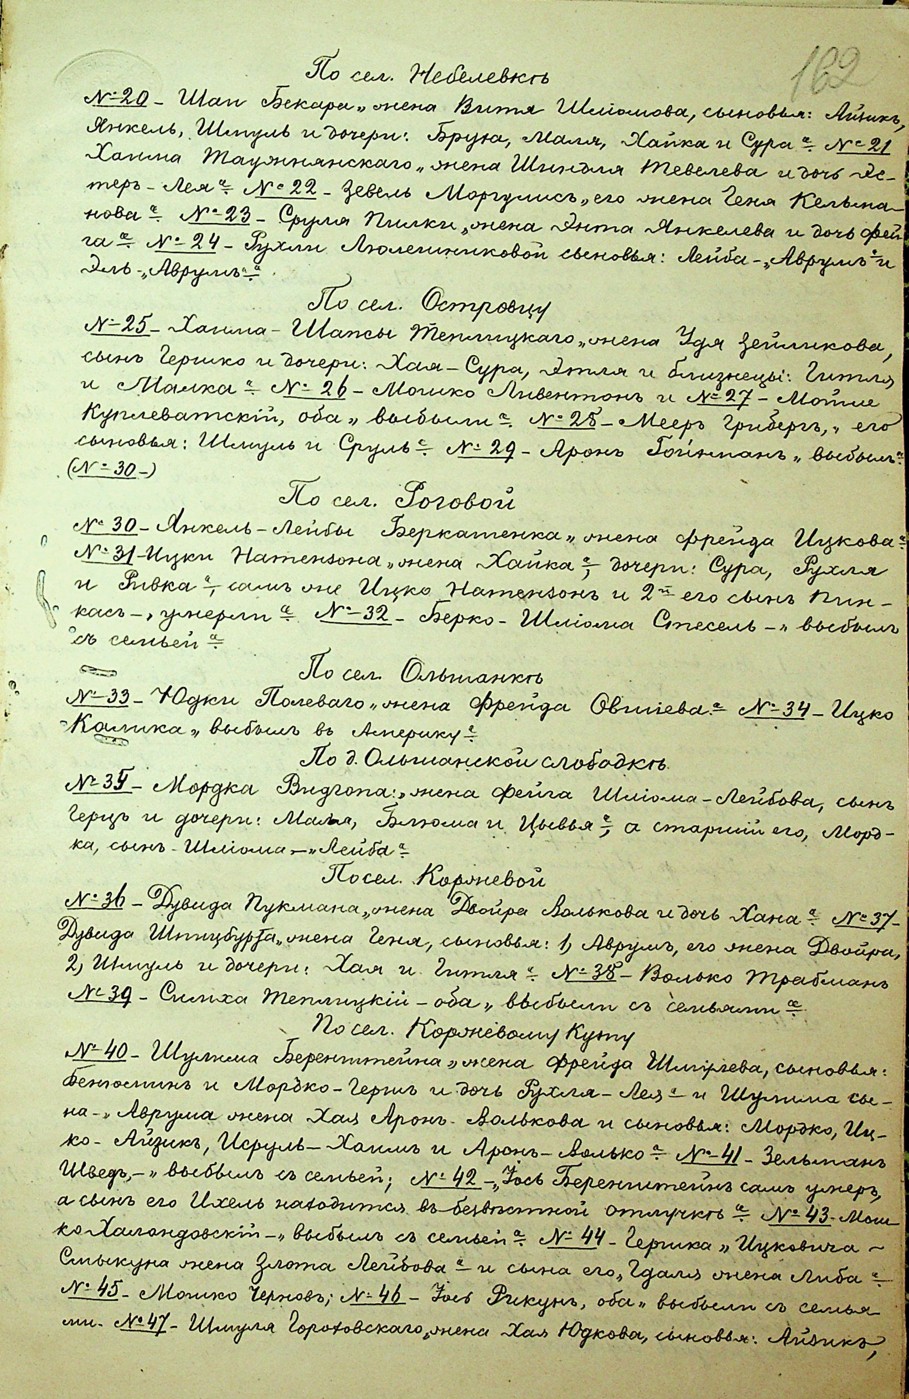 162
По сел. Небелевкѣ
№ 20 – Шап Бекара „жена Витя Шліомова, сыновья: Айзикъ,
Янкель, Шмуль и дочери: Бруха, Маля, Хайка и Сура“. № 21
Хаима Таужнянскаго „жена Шиндля Тевелева и дочь Эс-
теръ – Лея“. № 22 – Зевель Моргулисъ, „его жена Геня Кельма-
нова“. № 23 – Сруля Пилки „жена Энта Янкелева и дочь Фей
га“. № 24 – Рухли Люлешниковой сыновья: Лейба – „Аврумъ“ и
Эль – „Аврумъ“.
По сел. Островцу
№ 25 – Хаима – Шапсы Теплицкаго „жена Удя Зейликова,
сынъ Гершко и дочери: Хая – Сура, Этля и близнецы: Гитля
и Малка“. № 26 – Мошко Ливентонъ и № 27 – Мойше
Куплеватскій, оба „выбыли“. № 28 – Мееръ Грибергъ, „его
сыновья: Шмуль и Сруль“. № 29 – Аронъ Гойхманъ „выбылъ“.
(№ 30 –)
По сел. Роговой
№ 30 – Янкель – Лейбы Беркатенка „жена Фрейда Ицкова“
№ 31 – Ицки Натензона „жена Хайка“, дочери: Сура, Рухля
и Ривка“, самъ же Ицко Натензонъ и 2й его сынъ Пин-
касъ –, „умерли“. № 32 – Берко – Шліома Стесель – „выбылъ
съ семьей“.
По сел. Ольшанкѣ
№ 33 – Юдки Полеваго „жена Фрейда Овшіева“. № 34 – Ицко
Калика „выбылъ въ Америку“.
По д. Ольшанской слободкѣ.
№ 35 – Мордка Видгопа: „жена Фейга Шліома – Лейбова, сынъ
Герцъ и дочери: Малья, Блюма и Цывья“, а старшій его, Морд-
ка, сынъ – Шліома – „Лейба“.
По сел. Коржевой
№ 36 – Дувида Пукмана „жена Двойра Волькова и дочь Хана“. № 37 –
Дувида Шпицбурга „жена Геня, сыновья: 1, Аврумъ, его жена Двойра,
2, Шмуль и дочери: Хая и Гитля“. № 38 – Волько Трабманъ
№ 39 – Симха Теплицкій – оба „выбыли съ семьями“.
По сел. Коржевому Куту
№ 40 – Шулима Беренштейна „жена Фрейда Шмулева, сыновья:
Бенюминъ и Мордко – Гершъ и дочь Рухля – Лея“ и Шулима сы-
на – „Аврума жена Хая Аронъ – Волькова и сыновья: Мордко, Иц-
ко – Айзикъ, Исруль – Хаимъ и Аронъ – Волько“. № 41 – Зельманъ
Шведъ, – „выбылъ съ семьей; № 42 – „Іось Беренштейнъ самъ умеръ,
а сынъ его Ихель находится въ безвѣстной отлучкѣ“. № 43 – Мош
ко Халандовскій – „выбылъ съ семьей“. № 44 – Гершка „Ицковича –
Смыкуна жена Злота Лейбова“ и сына его, „Гдаля жена Либа“.
№ 45 – Мошко Черновъ; № 46 – Іось Рикунъ, оба „выбыли съ семья
ми. № 47 – Шмуля Гороховскаго „жена Хая Юдкова, сыновья: Айзикъ,